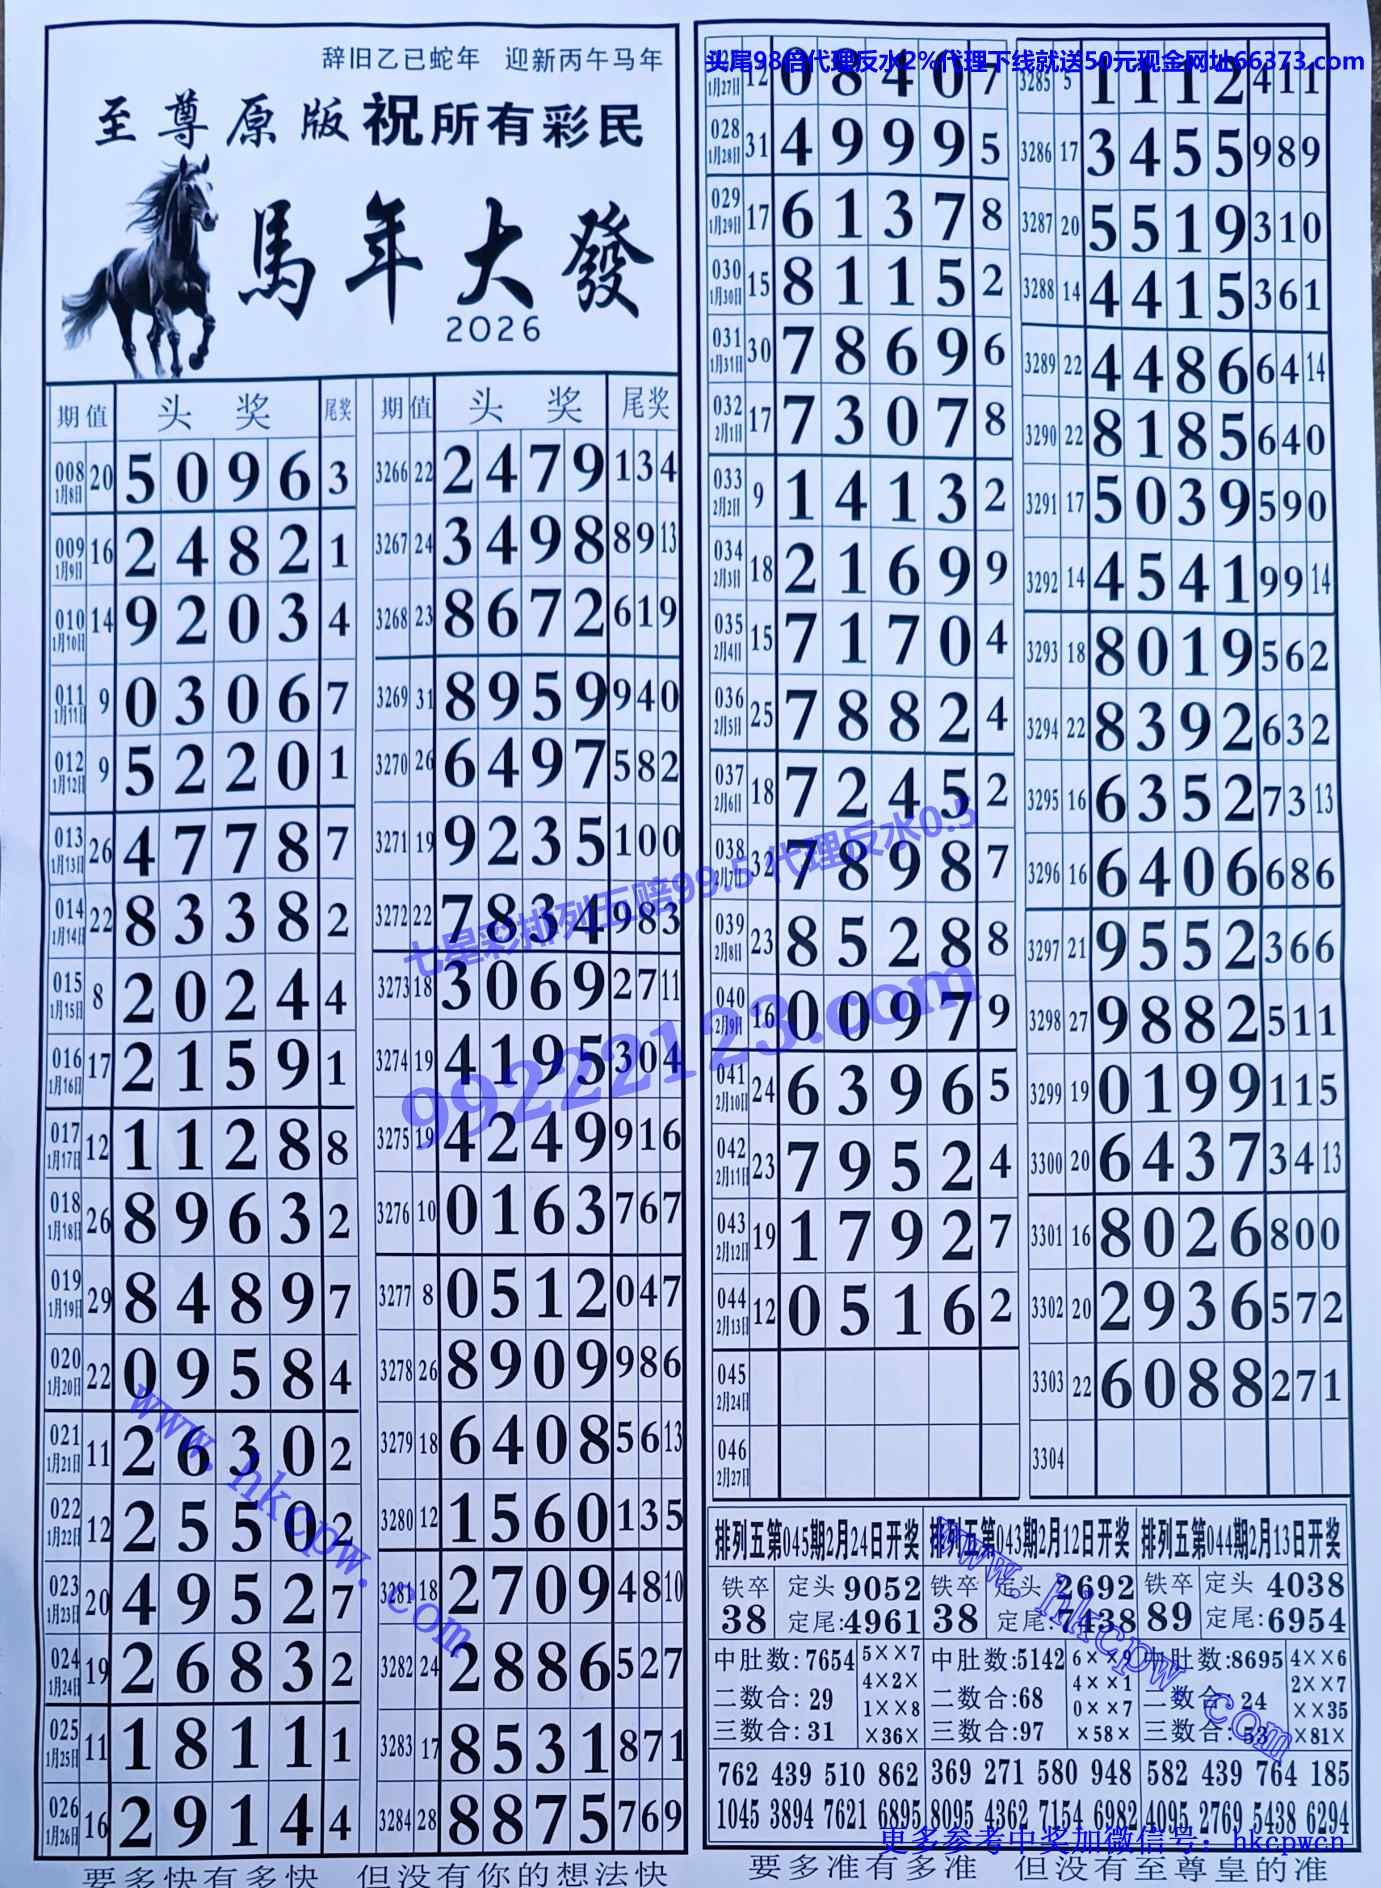 辞旧乙已蛇年 迎新丙午马年
至尊原版祝所有彩民
馬年大發
2026
期 值 头 奖 尾奖
008 1月8日 20 5 0 9 6 3
009 1月9日 16 2 4 8 2 1
010 1月10日 14 9 2 0 3 4
011 1月11日 9 0 3 0 6 7
012 1月12日 9 5 2 2 0 1
013 1月13日 26 4 7 7 8 7
014 1月14日 22 8 3 3 8 2
015 1月15日 8 2 0 2 4 4
016 1月16日 17 2 1 5 9 1
017 1月17日 12 1 1 2 8 8
018 1月18日 26 8 9 6 3 2
019 1月19日 29 8 4 8 9 7
020 1月20日 22 0 9 5 8 4
021 1月21日 11 2 6 3 0 2
022 1月22日 12 2 5 5 0 2
023 1月23日 20 4 9 5 2 7
024 1月24日 19 2 6 8 3 2
025 1月25日 11 1 8 1 1 1
026 1月26日 16 2 9 1 4 4
期 值 头 奖 尾奖
3266 22 2 4 7 9 1 3 4
3267 24 3 4 9 8 8 9 13
3268 23 8 6 7 2 6 1 9
3269 31 8 9 5 9 9 4 0
3270 26 6 4 9 7 5 8 2
3271 19 9 2 3 5 1 0 0
3272 22 7 8 3 4 9 8 3
3273 18 3 0 6 9 2 7 11
3274 19 4 1 9 5 3 0 4
3275 19 4 2 4 9 9 1 6
3276 10 0 1 6 3 7 6 7
3277 8 0 5 1 2 0 4 7
3278 26 8 9 0 9 9 8 6
3279 18 6 4 0 8 5 6 13
3280 12 1 5 6 0 1 3 5
3281 18 2 7 0 9 4 8 10
3282 24 2 8 8 6 5 2 7
3283 17 8 5 3 1 8 7 1
3284 28 8 8 7 5 7 6 9
要多快有多快 但没有你的想法快
头尾98倍代理反水2%代理下线就送50元现金网址66373.com
1月27日 12 0 8 4 0 7
028 1月28日 31 4 9 9 9 5
029 1月29日 17 6 1 3 7 8
030 1月30日 15 8 1 1 5 2
031 1月31日 30 7 8 6 9 6
032 2月1日 17 7 3 0 7 8
033 2月2日 9 1 4 1 3 2
034 2月3日 18 2 1 6 9 9
035 2月4日 15 7 1 7 0 4
036 2月5日 25 7 8 8 2 4
037 2月6日 18 7 2 4 5 2
038 2月7日 32 7 8 9 8 7
039 2月8日 23 8 5 2 8 8
040 2月9日 16 0 0 9 7 9
041 2月10日 24 6 3 9 6 5
042 2月11日 23 7 9 5 2 4
043 2月12日 19 1 7 9 2 7
044 2月13日 12 0 5 1 6 2
045 2月24日
046 2月27日
3285 5 1 1 1 2 4 1 1
3286 17 3 4 5 5 9 8 9
3287 20 5 5 1 9 3 1 0
3288 14 4 4 1 5 3 6 1
3289 22 4 4 8 6 6 4 14
3290 22 8 1 8 5 6 4 0
3291 17 5 0 3 9 5 9 0
3292 14 4 5 4 1 9 9 14
3293 18 8 0 1 9 5 6 2
3294 22 8 3 9 2 6 3 2
3295 16 6 3 5 2 7 3 13
3296 16 6 4 0 6 6 8 6
3297 21 9 5 5 2 3 6 6
3298 27 9 8 8 2 5 1 1
3299 19 0 1 9 9 1 1 5
3300 20 6 4 3 7 3 4 13
3301 16 8 0 2 6 8 0 0
3302 20 2 9 3 6 5 7 2
3303 22 6 0 8 8 2 7 1
3304
七星彩排列五赔99.5 代理反水0.5
99222123.com
www.hkcpw.com
排列五第045期2月24日开奖
铁卒 38 定头 9052
定尾:4961
中肚数:7654 5××7
二数合: 29 4×2×
三数合: 31 1××8
×36×
762 439 510 862
1045 3894 7621 6895
排列五第043期2月12日开奖
铁卒 38 定头 2692
定尾:7438
中肚数:5142 6××9
二数合:68 4××1
三数合:97 0××7
×58×
369 271 580 948
8095 4362 7154 6982
排列五第044期2月13日开奖
铁卒 89 定头 4038
定尾:6954
中肚数:8695 4××6
二数合: 24 2××7
三数合: 53 ××35
×81×
582 439 764 185
4095 2769 5438 6294
www.hkcpw.com
更多参考中奖加微信号：hkcpwcn
要多准有多准 但没有至尊皇的准